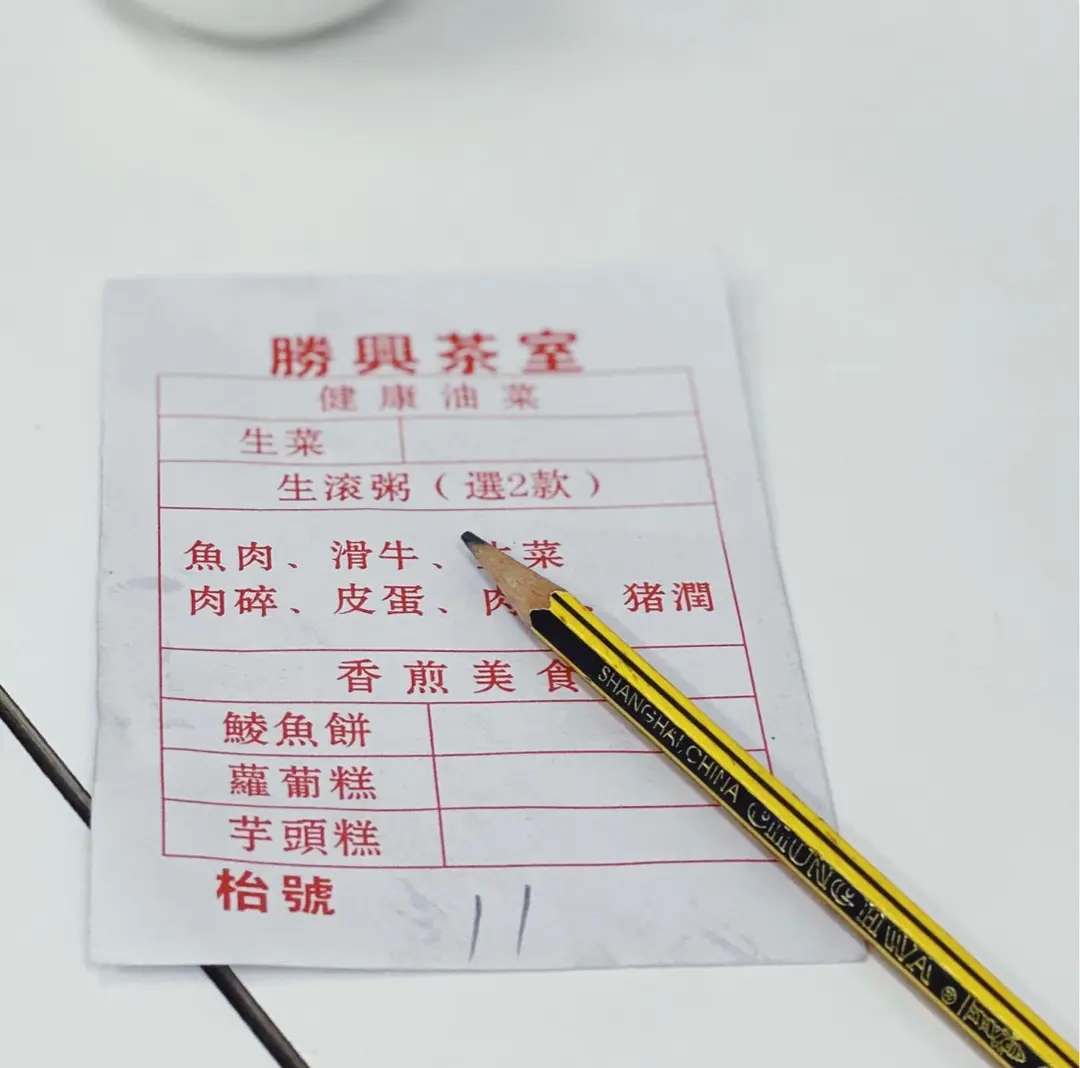 勝興茶室
健康油菜
生菜
生滚粥（選2款）
魚肉、滑牛、生菜
肉碎、皮蛋、肉、猪潤
香煎美食
鯪魚餅
蘿葡糕
芋頭糕
枱號 11
SHANGHAI, CHINA CHUNG HWA